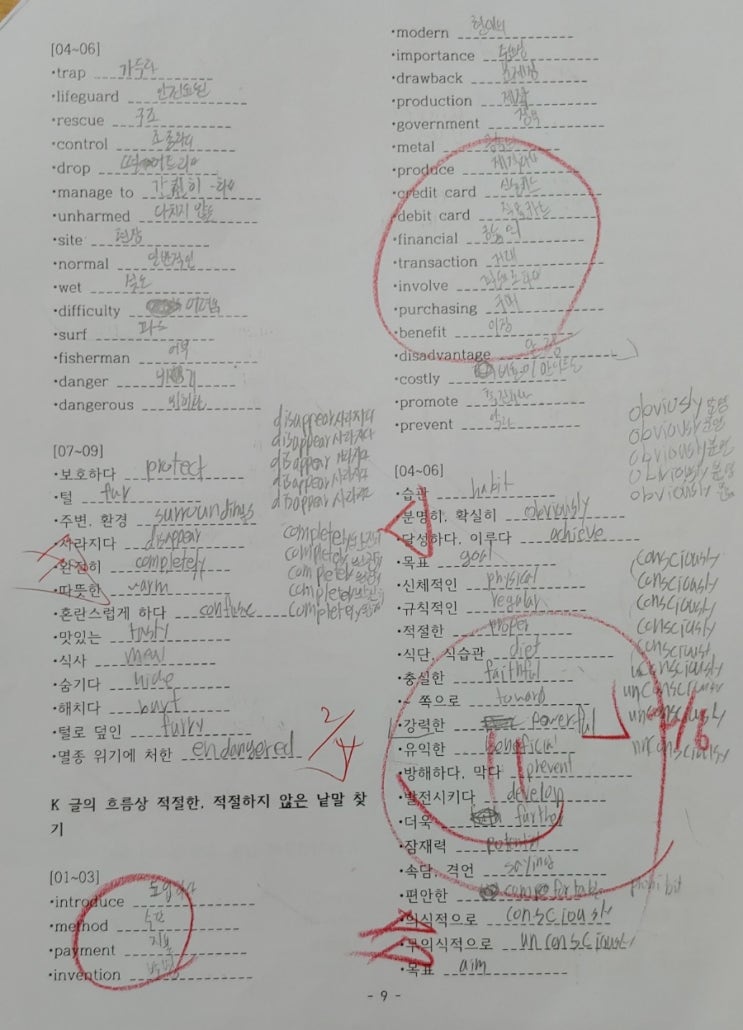 [04~06]
·trap 가두다
·lifeguard 안전요원
·rescue 구조
·control
·drop
·manage to 간신히 -하다
·unharmed 다치지 않은
·site 현장
·normal 일반적인
·wet
·difficulty 어려움
·surf 파도
·fisherman 어부
·danger
·dangerous 위험한
[07~09]
·보호하다 protect
·털 fur
·주변, 환경 surroundings
·사라지다 disappear
·완전히 completely
·따뜻한 warm
·혼란스럽게 하다 confuse
·맛있는 tasty
·식사 meal
·숨기다 hide
·해치다 hurt
·털로 덮인 furry
·멸종 위기에 처한 endangered
disappear 사라지다
disappear 사라지다
disappear 사라지다
disappear 사라지다
disappear 사라지다
completely
completely
completely
completely
completely
K 글의 흐름상 적절한, 적절하지 않은 낱말 찾
기
[01~03]
·introduce
·method 수단
·payment 지불
·invention
·modern 현대의
·importance 중요성
·drawback 문제점
·production
·government 정부
·metal
·produce
·credit card 신용카드
·debit card 직불카드
·financial
·transaction 거래
·involve
·purchasing 구매
·benefit 이점
·disadvantage
·costly
·promote
·prevent 막다
obviously 분명
obviously 분명
obviously 분명
obviously 분명
obviously 분명
[04~06]
·습관 habit
·분명히, 확실히 obviously
·달성하다, 이루다 achieve
·목표 goal
·신체적인 physical
·규칙적인 regular
·적절한 proper
·식단, 식습관 diet
·충실한 faithful
·~ 쪽으로 toward
·강력한 powerful
·유익한 beneficial
·방해하다, 막다 prevent
·발전시키다 develop
·더욱 further
·잠재력
·속담, 격언 saying
·편안한 comfortable
·의식적으로 consciously
·무의식적으로 unconsciously
·목표 aim
consciously
consciously
consciously
consciously
consciously
unconsciously
unconsciously
unconsciously
unconsciously
prohibit
- 9 -